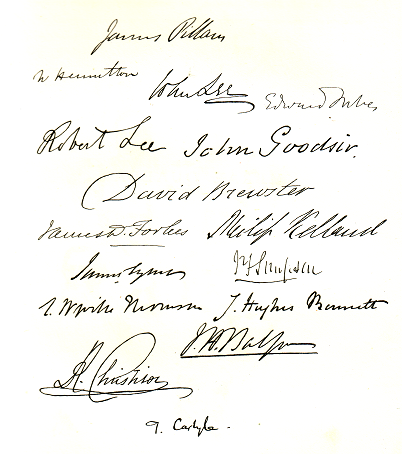 James Pillans
W Hamilton
John Lee
Edward Forbes
Robert Lee John Goodsir.
David Brewster
James D. Forbes Philip Kelland
James Syme J Y Simpson
J. Hughes Bennett
J. H. Balfour
R. Christison
T. Carlyle.